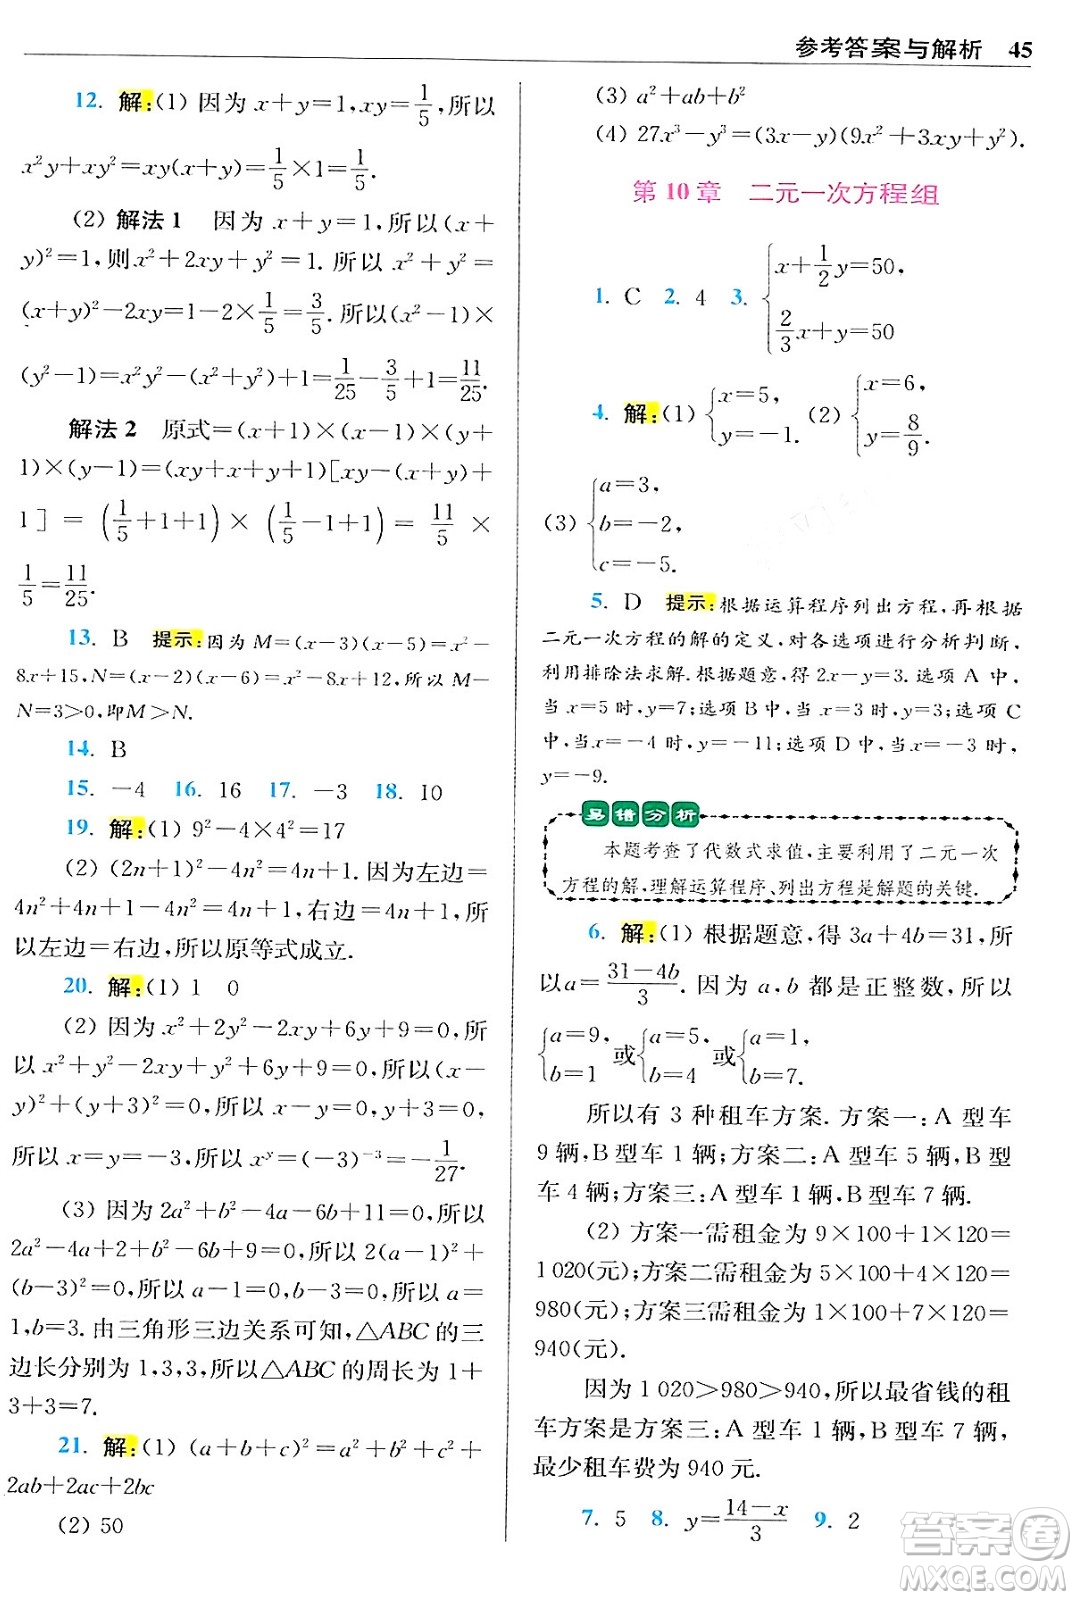 参考答案与解析 45
12. 解:(1) 因为 x+y=1,xy=1/5,所以
x²y+xy²=xy(x+y)=1/5×1=1/5.
(2) 解法1 因为 x+y=1,所以(x+
y)²=1,则x²+2xy+y²=1. 所以 x²+y²=
(x+y)²-2xy=1-2×1/5=3/5.所以(x²-1)×
(y²-1)=x²y²-(x²+y²)+1=1/25-3/5+1=11/25.
解法2 原式=(x+1)×(x-1)×(y+
1)×(y-1)=(xy+x+y+1)[xy-(x+y)+
1]=(1/5+1+1)×(1/5-1+1)=11/5×
1/5=11/25.
13. B 提示:因为 M=(x-3)(x-5)=x²-
8x+15,N=(x-2)(x-6)=x²-8x+12,所以 M-
N=3>0,即M>N.
14. B
15. -4 16. 16 17. -3 18. 10
19. 解:(1) 9²-4×4²=17
(2) (2n+1)²-4n²=4n+1,因为左边=
4n²+4n+1-4n²=4n+1,右边=4n+1,所
以左边=右边,所以原等式成立.
20. 解:(1) 1 0
(2) 因为 x²+2y²-2xy+6y+9=0,所
以 x²+y²-2xy+y²+6y+9=0,所以(x-
y)²+(y+3)²=0,所以 x-y=0,y+3=0,
所以 x=y=-3,所以 xʸ=(-3)⁻³=-1/27.
(3) 因为2a²+b²-4a-6b+11=0,所以
2a²-4a+2+b²-6b+9=0,所以2(a-1)²+
(b-3)²=0,所以 a-1=0,b-3=0,所以a=
1,b=3. 由三角形三边关系可知,△ABC 的三
边长分别为 1,3,3,所以△ABC 的周长为 1+
3+3=7.
21. 解:(1) (a+b+c)²=a²+b²+c²+
2ab+2ac+2bc
(2) 50
(3) a²+ab+b²
(4) 27x³-y³=(3x-y)(9x²+3xy+y²).
第 10 章 二元一次方程组
1. C 2. 4 3. { x+1/2y=50, 2/3x+y=50
4. 解:(1) { x=5, y=-1. (2) { x=6, y=8/9.
(3) { a=3, b=-2, c=-5.
5. D 提示:根据运算程序列出方程,再根据
二元一次方程的解的定义,对各选项进行分析判断,
利用排除法求解. 根据题意,得 2x-y=3. 选项 A 中,
当 x=5 时,y=7;选项 B 中,当 x=3 时,y=3;选项 C
中,当x=-4 时,y=-11;选项 D 中,当x=-3 时,
y=-9.
易错分析
本题考查了代数式求值,主要利用了二元一次
方程的解,理解运算程序、列出方程是解题的关键.
6. 解:(1) 根据题意,得 3a+4b=31,所
以a=(31-4b)/3. 因为 a,b 都是正整数,所以
{ a=9, b=1 或 { a=5, b=4 或 { a=1, b=7.
所以有 3 种租车方案. 方案一:A 型车
9 辆,B 型车 1 辆;方案二:A 型车5辆,B 型
车 4 辆;方案三:A 型车1辆,B 型车 7 辆.
(2) 方案一需租金为 9×100+1×120=
1 020(元);方案二需租金为 5×100+4×120=
980(元);方案三需租金为 1×100+7×120=
940(元).
因为 1 020>980>940,所以最省钱的租
车方案是方案三:A 型车 1 辆,B 型车 7 辆,
最少租车费为 940 元.
7. 5 8. y=(14-x)/3 9. 2
答案卷
MXQE.COM